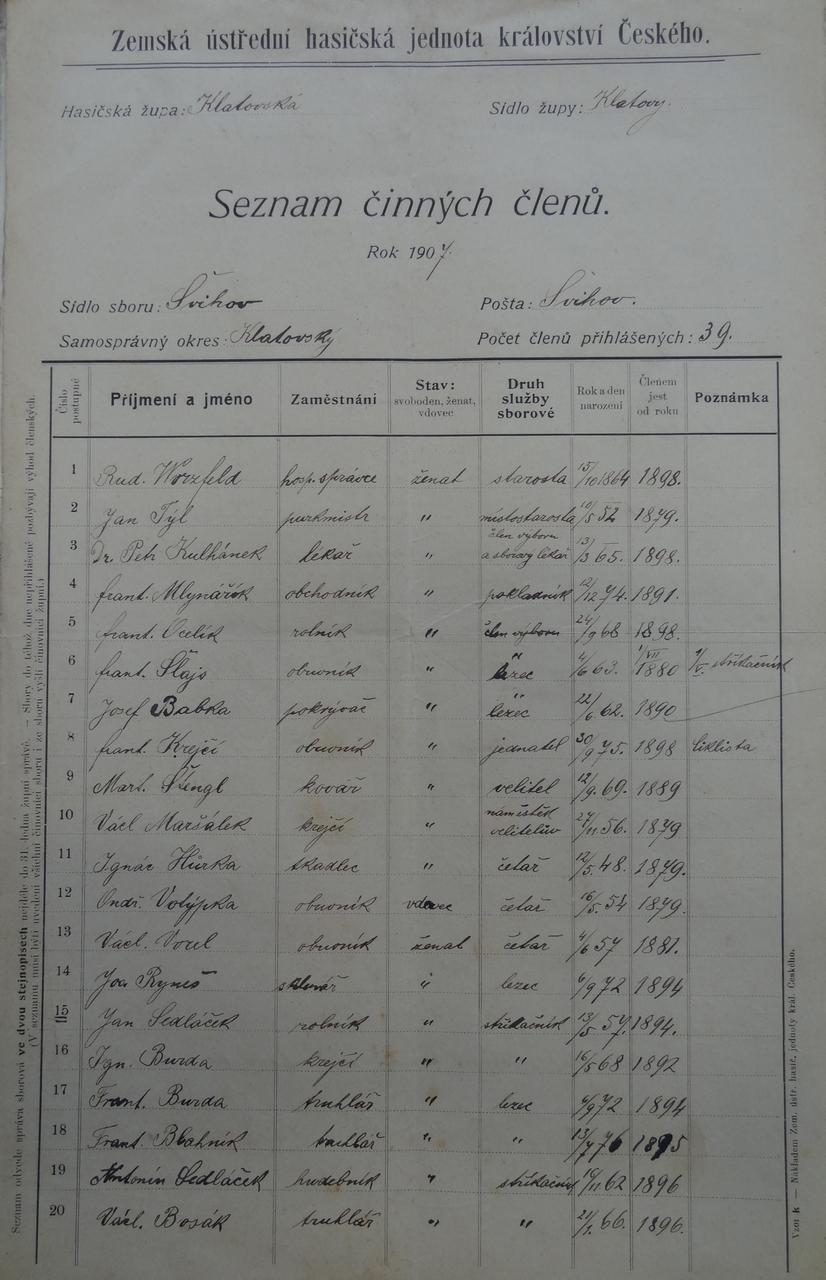 Zemská ústřední hasičská jednota království Českého.
Hasičská župa: Klatovská Sídlo župy: Klatovy.
Seznam činných členů.
Rok 1907.
Sídlo sboru: Švihov Pošta: Švihov.
Samosprávný okres: Klatovský Počet členů přihlášených: 39.
Číslo postupné Příjmení a jméno Zaměstnání Stav: svoboden, ženat, vdovec Druh služby sborové Rok a den narození Členem jest od roku Poznámka
1 Rud. Worzfeld hosp. správce ženat starosta 15/10 1864 1898.
2 Jan Týl purkmistr " místostarosta 10/5 52 1879.
3 Dr. Petr Kulhánek lékař " člen výboru a sborový lékař 13/3 65. 1898.
4 frant. Mlynářík obchodník " pokladník 12/12 74. 1891.
5 frant. Ocelík rolník " člen výboru 24/9 68 1898.
6 frant. Šlajs obuvník " " lezec 4/6 63. 1/VII 1880 stříkačník
7 Josef Babka pokrývač " " lezec 22/6 62. 1890
8 frant. Krejčí obuvník " jednatel 30/9 75. 1898 Ciklista
9 Mart. Štengl kovář " velitel 12/9. 69. 1889
10 Václ Maršálek krejčí " náměstek velitelův 27/11 56. 1879
11 Ignác Hůrka tkadlec " četař 12/5. 48. 1879.
12 Ondř. Volýpka obuvník vdovec četař 16/5. 54 1879.
13 Václ. Voul obuvník ženat četař 4/6 57 1881.
14 Jos Ryneš sklenář " lezec 6/9 72 1894
15 Jan Sedláček rolník " stříkačník 13/5 57. 1894.
16 Ign. Burda krejčí " " 16/5 68 1892
17 Frant. Burda truhlář " lezec 4/9 72 1894
18 Frant. Blahník truhlář " " 13/7 76 1895
19 Antonín Sedláček hudebník " stříkačník 19/11 62 1896
20 Václ. Bosák truhlář " " 21/1. 66. 1896.
Seznam odvede správa sborová ve dvou stejnopisech nejdéle do 31. ledna župní správě. — Sbory do téhož dne nepřihlášené pozbývají výhod členských.
(V seznamu musí býti uvedeni všichni činovníci sboru i ze sboru vyšlí činovníci župní.)
Vzor k — Nákladem Zem. ústř. hasič. jednoty král. Českého.